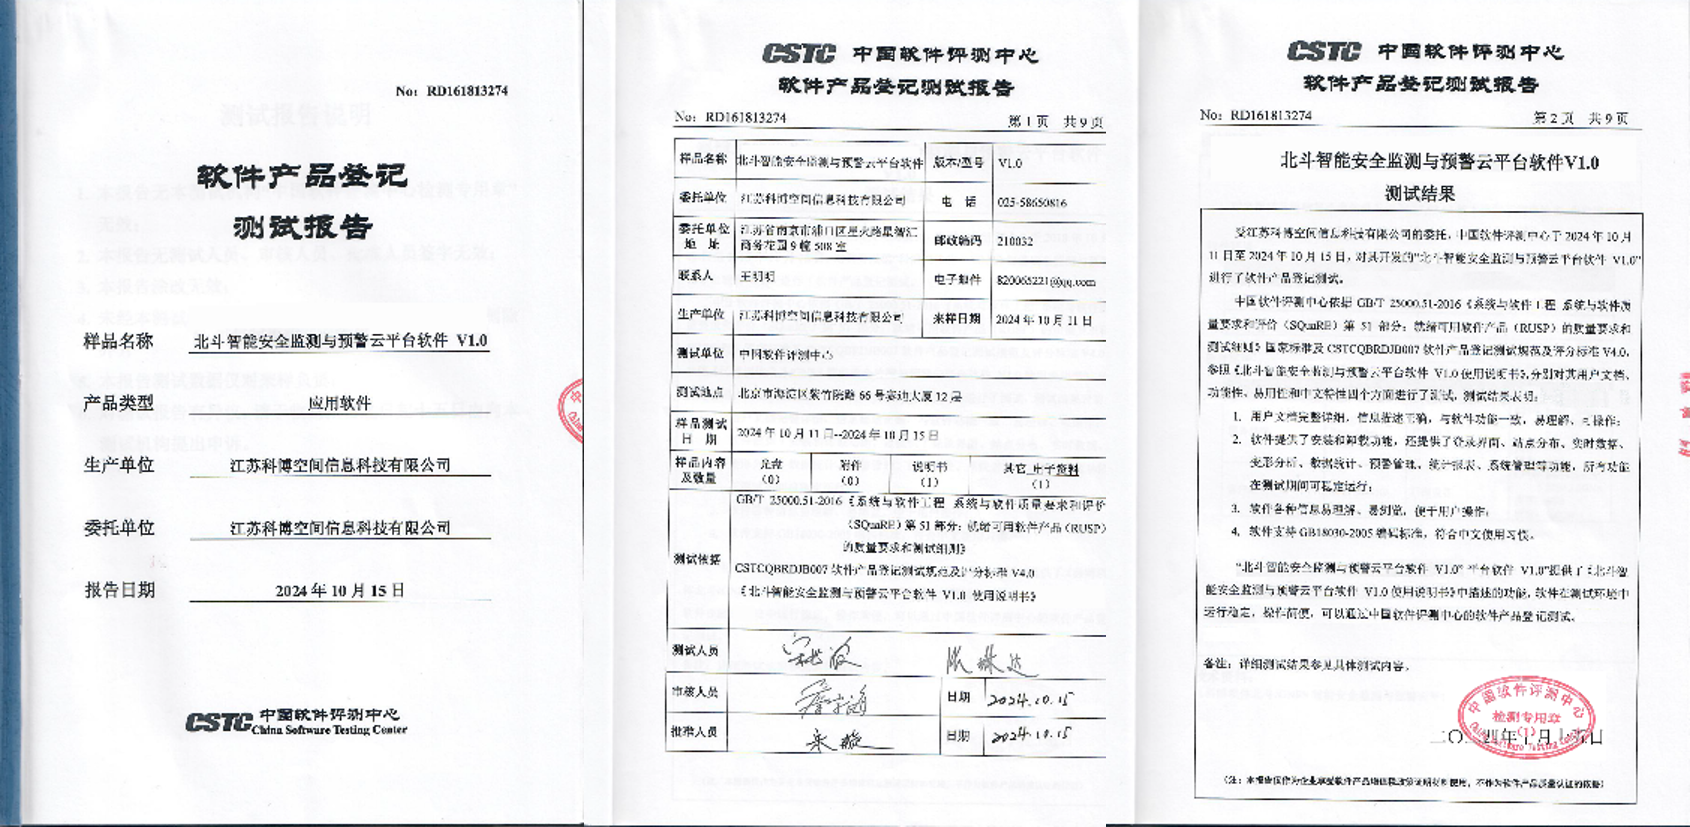 No: RD161813274
软件产品登记
测试报告
样品名称 北斗智能安全监测与预警云平台软件 V1.0
产品类型 应用软件
生产单位 江苏科博空间信息科技有限公司
委托单位 江苏科博空间信息科技有限公司
报告日期 2024 年 10 月 15 日
CSTC 中国软件评测中心
China Software Testing Center
CSTC 中国软件评测中心
软件产品登记测试报告
No: RD161813274 第 1 页 共 9 页
样品名称 北斗智能安全监测与预警云平台软件 版本/型号 V1.0
委托单位 江苏科博空间信息科技有限公司 电 话 025-58650816
委托单位地 址 江苏省南京市浦口区星火路星智汇商务花园 9 幢 508 室 邮政编码 210032
联系人 王明明 电子邮件 820065221@qq.com
生产单位 江苏科博空间信息科技有限公司 来样日期 2024 年 10 月 11 日
测试单位 中国软件评测中心
测试地点 北京市海淀区紫竹院路 66 号赛迪大厦 12 层
样品测试日 期 2024 年 10 月 11 日--2024 年 10 月 15 日
样品内容及数量 光盘(0) 附件(0) 说明书(1) 其它 电子资料(1)
测试依据
GB/T 25000.51-2016《系统与软件工程 系统与软件质量要求和评价
(SQuaRE) 第 51 部分: 就绪可用软件产品 (RUSP)
的质量要求和测试细则》
CSTCQBRDJB007 软件产品登记测试规范及评分标准 V4.0
《北斗智能安全监测与预警云平台软件 V1.0 使用说明书》
测试人员
审核人员 日期 2024.10.15
批准人员 日期 2024.10.15
CSTC 中国软件评测中心
软件产品登记测试报告
No: RD161813274 第 2 页 共 9 页
北斗智能安全监测与预警云平台软件V1.0
测试结果
受江苏科博空间信息科技有限公司的委托, 中国软件评测中心于 2024 年 10 月
11 日至 2024 年 10 月 15 日, 对其开发的“北斗智能安全监测与预警云平台软件 V1.0”
进行了软件产品登记测试。
中国软件评测中心依据 GB/T 25000.51-2016《系统与软件工程 系统与软件质
量要求和评价 (SQuaRE) 第 51 部分: 就绪可用软件产品 (RUSP) 的质量要求和
测试细则》国家标准及 CSTCQBRDJB007 软件产品登记测试规范及评分标准 V4.0,
参照《北斗智能安全监测与预警云平台软件 V1.0 使用说明书》, 分别对其用户文档、
功能性、易用性和中文特性四个方面进行了测试, 测试结果表明:
1. 用户文档完整详细, 信息描述正确, 与软件功能一致, 易理解、可操作;
2. 软件提供了安装和卸载功能, 还提供了登录界面、站点分布、实时数据、
变形分析、数据统计、预警管理、统计报表、系统管理等功能, 所有功能
在测试期间可稳定运行;
3. 软件各种信息易理解、易浏览, 便于用户操作;
4. 软件支持 GB18030-2005 编码标准, 符合中文使用习惯。
“北斗智能安全监测与预警云平台软件 V1.0” 平台软件 V1.0”提供了《北斗智
能安全监测与预警云平台软件 V1.0 使用说明书》中描述的功能, 软件在测试环境中
运行稳定, 操作简便, 可以通过中国软件评测中心的软件产品登记测试。
备注: 详细测试结果参见具体测试内容。
中国软件评测中心
检测专用章
(1)
二〇二四年十月十五日
(注: 本报告仅作为企业享受软件产品增值税政策证明材料使用, 不作为软件产品质量认证的依据)